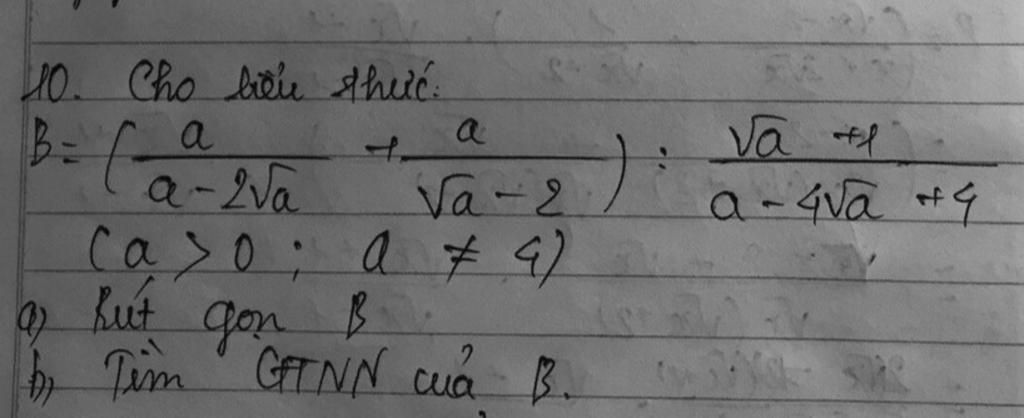 10. Cho biểu thức:
B = ( a / (a - 2√a) + a / (√a - 2) ) : (√a + 1) / (a - 4√a + 4)
(a > 0 ; a ≠ 4)
a) Rút gọn B
b) Tìm GTNN của B.